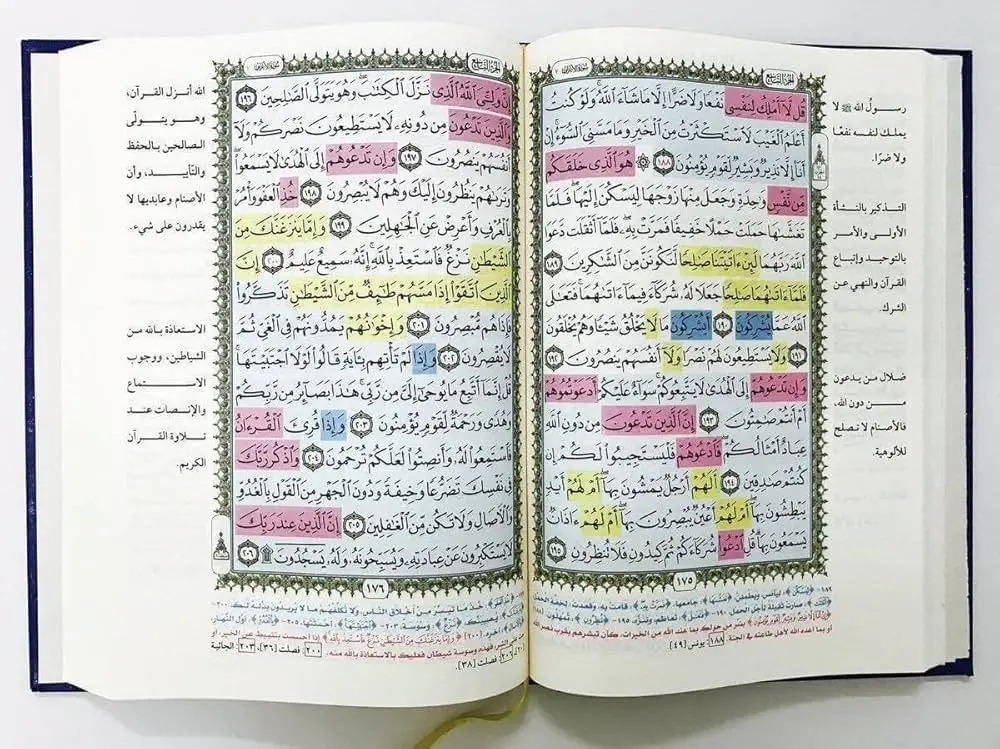 الجزء التاسع
سورة الأعراف ٧
قُل لَّآ أَمْلِكُ لِنَفْسِى نَفْعًا وَلَا ضَرًّا إِلَّا مَا شَآءَ ٱللَّهُ وَلَوْ كُنتُ
أَعْلَمُ ٱلْغَيْبَ لَٱسْتَكْثَرْتُ مِنَ ٱلْخَيْرِ وَمَا مَسَّنِىَ ٱلسُّوٓءُ إِنْ
أَنَا۠ إِلَّا نَذِيرٌ وَبَشِيرٌ لِّقَوْمٍ يُؤْمِنُونَ ١٨٨ ۞ هُوَ ٱلَّذِى خَلَقَكُم
مِّن نَّفْسٍ وَٰحِدَةٍ وَجَعَلَ مِنْهَا زَوْجَهَا لِيَسْكُنَ إِلَيْهَا فَلَمَّا
تَغَشَّىٰهَا حَمَلَتْ حَمْلًا خَفِيفًا فَمَرَّتْ بِهِۦ فَلَمَّآ أَثْقَلَت دَّعَوَا
ٱللَّهَ رَبَّهُمَا لَئِنْ ءَاتَيْتَنَا صَٰلِحًا لَّنَكُونَنَّ مِنَ ٱلشَّٰكِرِينَ ١٨٩
فَلَمَّآ ءَاتَىٰهُمَا صَٰلِحًا جَعَلَا لَهُۥ شُرَكَآءَ فِيمَآ ءَاتَىٰهُمَا فَتَعَٰلَى
ٱللَّهُ عَمَّا يُشْرِكُونَ ١٩٠ أَيُشْرِكُونَ مَا لَا يَخْلُقُ شَيْـًٔا وَهُمْ يُخْلَقُونَ
١٩١ وَلَا يَسْتَطِيعُونَ لَهُمْ نَصْرًا وَلَآ أَنفُسَهُمْ يَنصُرُونَ ١٩٢
وَإِن تَدْعُوهُمْ إِلَى ٱلْهُدَىٰ لَا يَتَّبِعُوكُمْ سَوَآءٌ عَلَيْكُمْ أَدَعَوْتُمُوهُمْ
أَمْ أَنتُمْ صَٰمِتُونَ ١٩٣ إِنَّ ٱلَّذِينَ تَدْعُونَ مِن دُونِ ٱللَّهِ
عِبَادٌ أَمْثَالُكُمْ فَٱدْعُوهُمْ فَلْيَسْتَجِيبُوا۟ لَكُمْ إِن
كُنتُمْ صَٰدِقِينَ ١٩٤ أَلَهُمْ أَرْجُلٌ يَمْشُونَ بِهَآ أَمْ لَهُمْ أَيْدٍ
يَبْطِشُونَ بِهَآ أَمْ لَهُمْ أَعْيُنٌ يُبْصِرُونَ بِهَآ أَمْ لَهُمْ ءَاذَانٌ
يَسْمَعُونَ بِهَا قُلِ ٱدْعُوا۟ شُرَكَآءَكُمْ ثُمَّ كِيدُونِ فَلَا تُنظِرُونِ ١٩٥
١٧٥
رسولُ الله ﷺ لا
يملك لنفسه نفعًا
ولا ضرًا.
التذكير بالنشأة
الأولى والأمر
بالتوحيد وإتباع
القرآن والنهي عن
الشرك.
ضلال من يدعون
من دون الله،
فالأصنام لا تصلح
للألوهية.
أو بما أعده الله لأهل طاعته في الجنة. ١٨٨: يونس [٤٩].
الجزء التاسع
سورة الأعراف ٧
إِنَّ وَلِـِّۧىَ ٱللَّهُ ٱلَّذِى نَزَّلَ ٱلْكِتَٰبَ وَهُوَ يَتَوَلَّى ٱلصَّٰلِحِينَ ١٩٦
وَٱلَّذِينَ تَدْعُونَ مِن دُونِهِۦ لَا يَسْتَطِيعُونَ نَصْرَكُمْ وَلَآ
أَنفُسَهُمْ يَنصُرُونَ ١٩٧ وَإِن تَدْعُوهُمْ إِلَى ٱلْهُدَىٰ لَا يَسْمَعُوا۟
وَتَرَىٰهُمْ يَنظُرُونَ إِلَيْكَ وَهُمْ لَا يُبْصِرُونَ ١٩٨ خُذِ ٱلْعَفْوَ وَأْمُرْ
بِٱلْعُرْفِ وَأَعْرِضْ عَنِ ٱلْجَٰهِلِينَ ١٩٩ وَإِمَّا يَنزَغَنَّكَ مِنَ
ٱلشَّيْطَٰنِ نَزْغٌ فَٱسْتَعِذْ بِٱللَّهِ إِنَّهُۥ سَمِيعٌ عَلِيمٌ ٢٠٠ إِنَّ
ٱلَّذِينَ ٱتَّقَوْا۟ إِذَا مَسَّهُمْ طَٰٓئِفٌ مِّنَ ٱلشَّيْطَٰنِ تَذَكَّرُوا۟
فَإِذَا هُم مُّبْصِرُونَ ٢٠١ وَإِخْوَٰنُهُمْ يَمُدُّونَهُمْ فِى ٱلْغَىِّ ثُمَّ
لَا يُقْصِرُونَ ٢٠٢ وَإِذَا لَمْ تَأْتِهِم بِـَٔايَةٍ قَالُوا۟ لَوْلَا ٱجْتَبَيْتَهَا
قُلْ إِنَّمَآ أَتَّبِعُ مَا يُوحَىٰٓ إِلَىَّ مِن رَّبِّى هَٰذَا بَصَآئِرُ مِن رَّبِّكُمْ
وَهُدًى وَرَحْمَةٌ لِّقَوْمٍ يُؤْمِنُونَ ٢٠٣ وَإِذَا قُرِئَ ٱلْقُرْءَانُ
فَٱسْتَمِعُوا۟ لَهُۥ وَأَنصِتُوا۟ لَعَلَّكُمْ تُرْحَمُونَ ٢٠٤ وَٱذْكُر رَّبَّكَ
فِى نَفْسِكَ تَضَرُّعًا وَخِيفَةً وَدُونَ ٱلْجَهْرِ مِنَ ٱلْقَوْلِ بِٱلْغُدُوِّ
وَٱلْـَٔاصَالِ وَلَا تَكُن مِّنَ ٱلْغَٰفِلِينَ ٢٠٥ إِنَّ ٱلَّذِينَ عِندَ رَبِّكَ
لَا يَسْتَكْبِرُونَ عَنْ عِبَادَتِهِۦ وَيُسَبِّحُونَهُۥ وَلَهُۥ يَسْجُدُونَ ۩ ٢٠٦
١٧٦
الله أنزل القرآن،
وهو يتولَّى
الصالحين بالحفظ
والتَّأييد، وأن
الأصنام وعابديها لا
يقدرون على شيء.
الاستعاذة بالله من
الشياطين، ووجوب
الاستماع
والإنصات عند
تلاوة القرآن
الكريم.
٢٠٠: فصلت [٣٦]، ٢٠٣: الجاثية
[٢٠]، ٢٠٦: فصلت [٣٨].